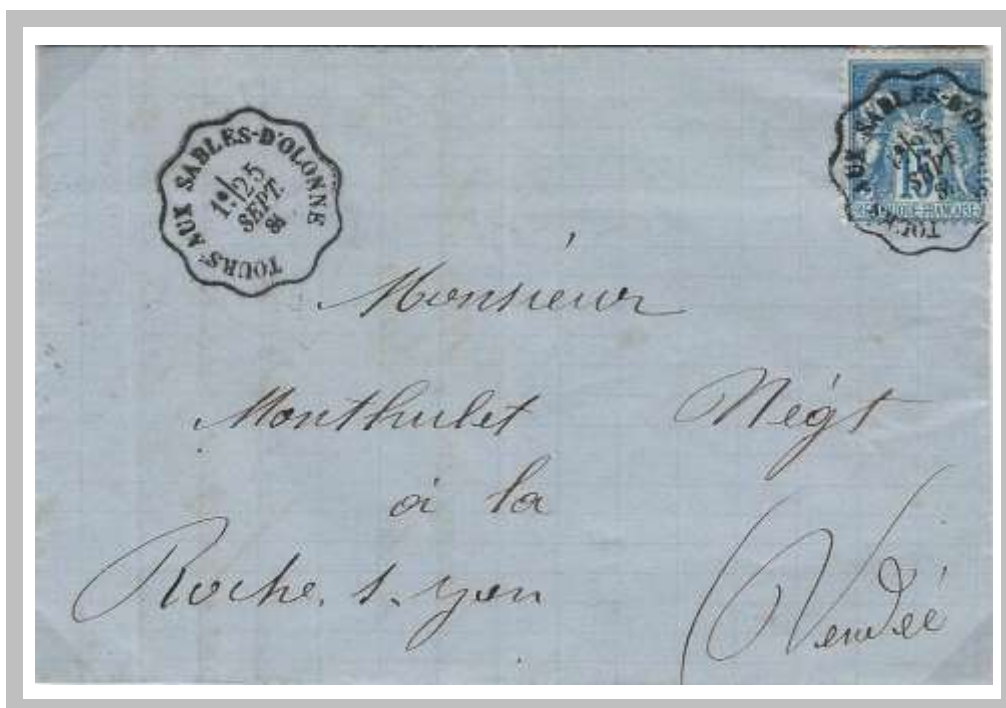 TOURS AUX SABLES-D'OLONNE
1º/25
SEPT.
81
TOURS AUX SABLES-D'OLONNE
25
SEPT
15
REPUBLIQUE FRANÇAISE
Monsieur
Monthulet Négt
à la
Roche. s. yon
(Vendée